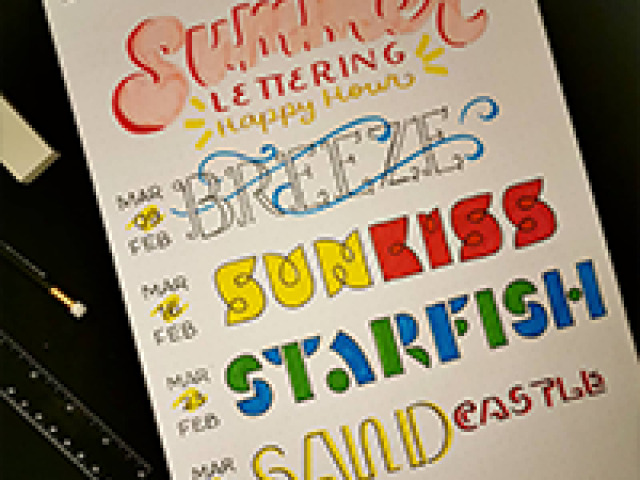 Summer
LETTERING
Happy Hour
BREEZE
MAR
FEB
SUNKISS
MAR
12
FEB
STARFISH
MAR
23
FEB
SANDCASTLE
MAR